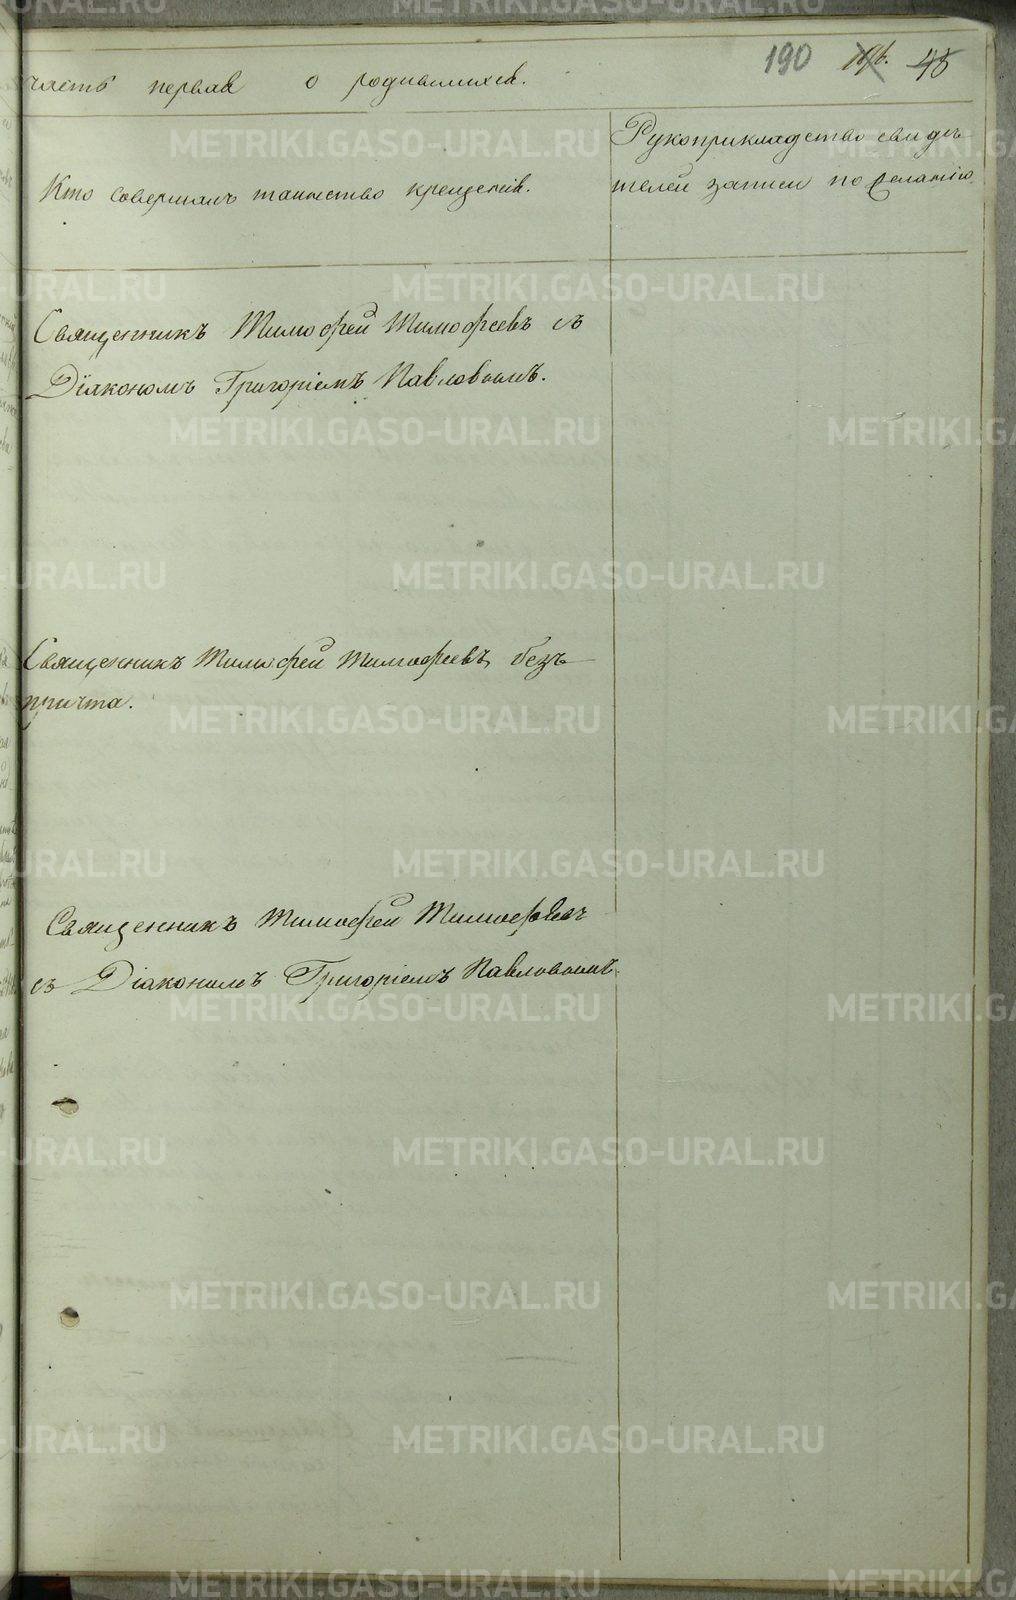 190 45
часть первая о родившихся.
Кто совершалъ таинство крещенія.
Рукоприкладство свидѣ-
телей записи по желанію.
Священникъ Тимофей Тимофеевъ съ
Діакономъ Григоріемъ Павловымъ.
Священникъ Тимофей Тимофеевъ, безъ
причта.
Священникъ Тимофей Тимофеевъ
съ Діакономъ Григоріемъ Павловымъ.
METRIKI.GASO-URAL.RU